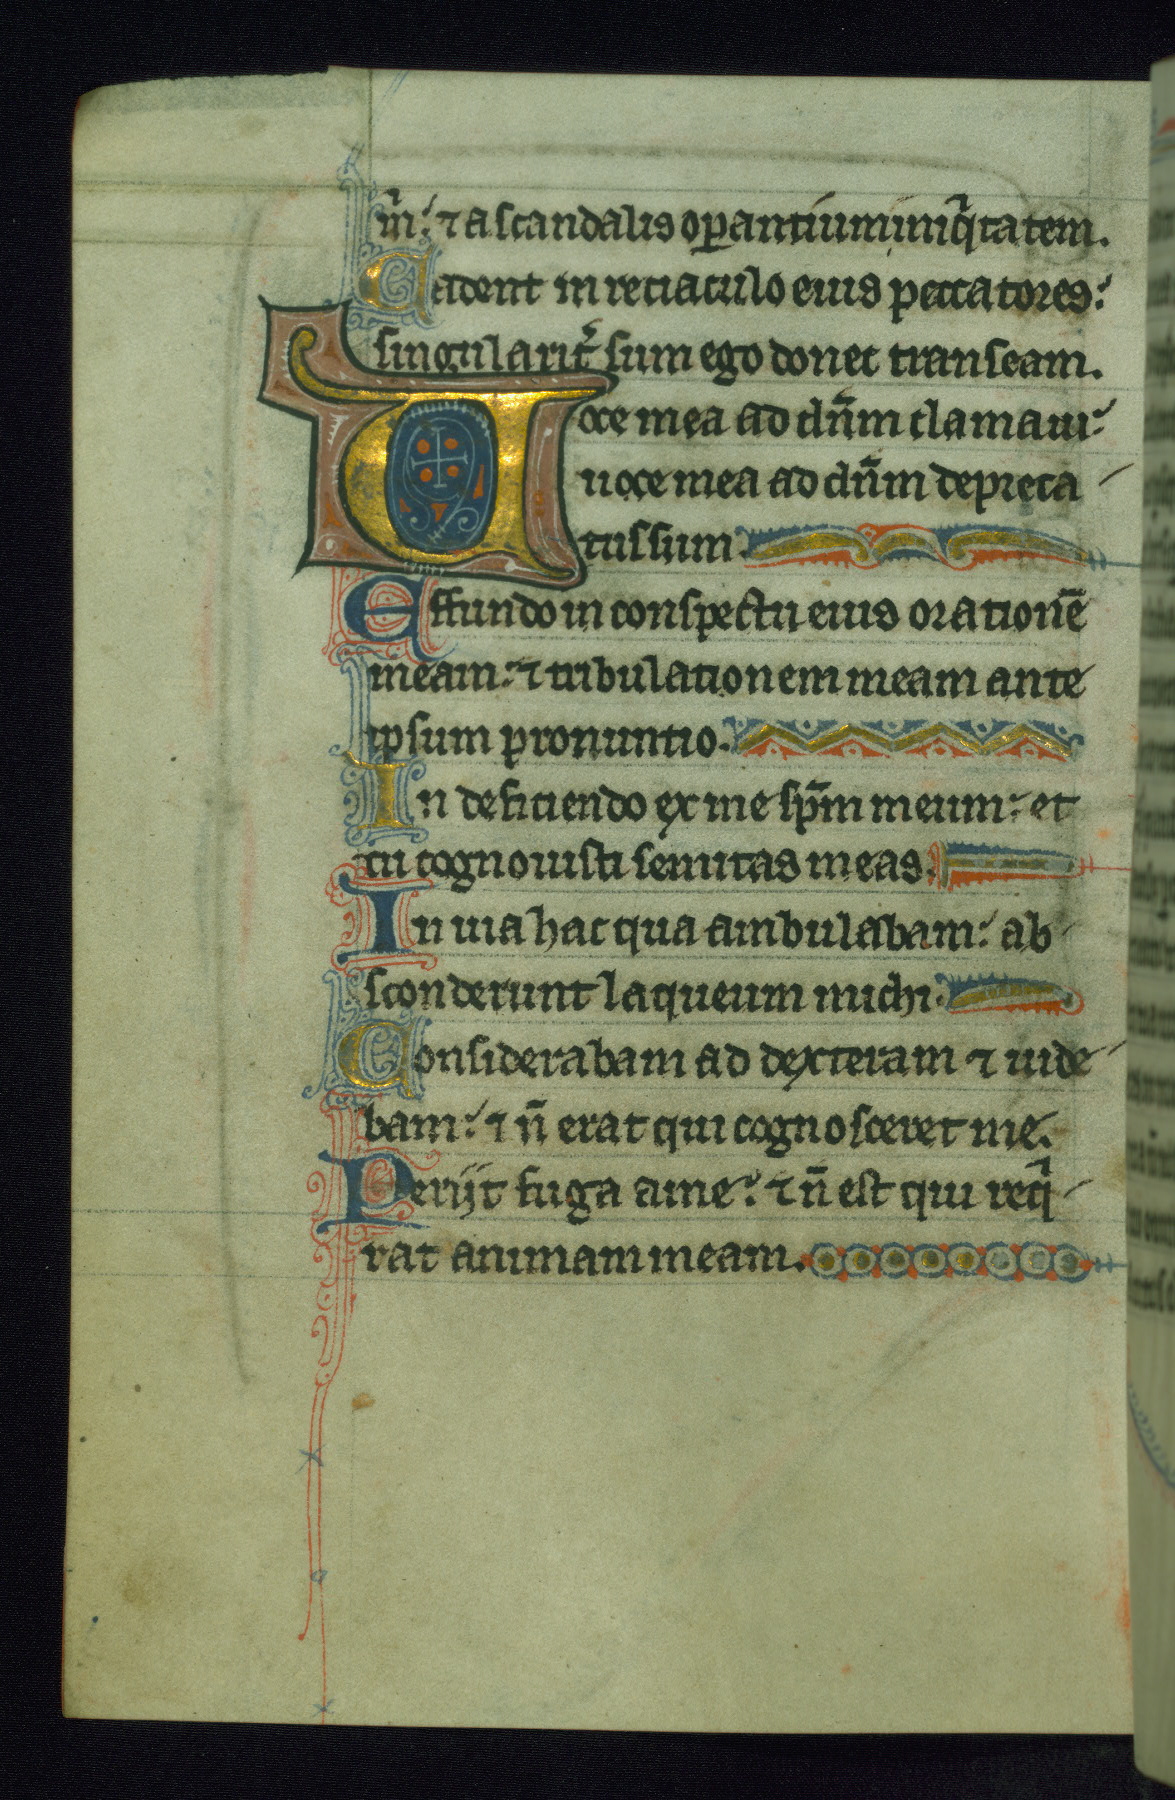 m̃: ⁊ a scandalis op̲antium iniq̓tatem.
Cadent in retiaculo eius peccatores:
singularit̓ sum ego donec transeam.
Uoce mea ad dn̄m clamaui:
uoce mea ad dn̄m depreca
tus sum.
Effundo in conspectu eius orationē
meam: ⁊ tribulationem meam ante
ipsum pronuntio.
In deficiendo ex me sp̄m meum: et
tu cognouisti semitas meas.
In uia hac qua ambulabam: ab
sconderunt laqueum michi.
Considerabam ad dexteram ⁊ uide
bam: ⁊ n̄ erat qui cognosceret me.
Perijt fuga a me: ⁊ n̄ est qui req̓
rat animam meam.